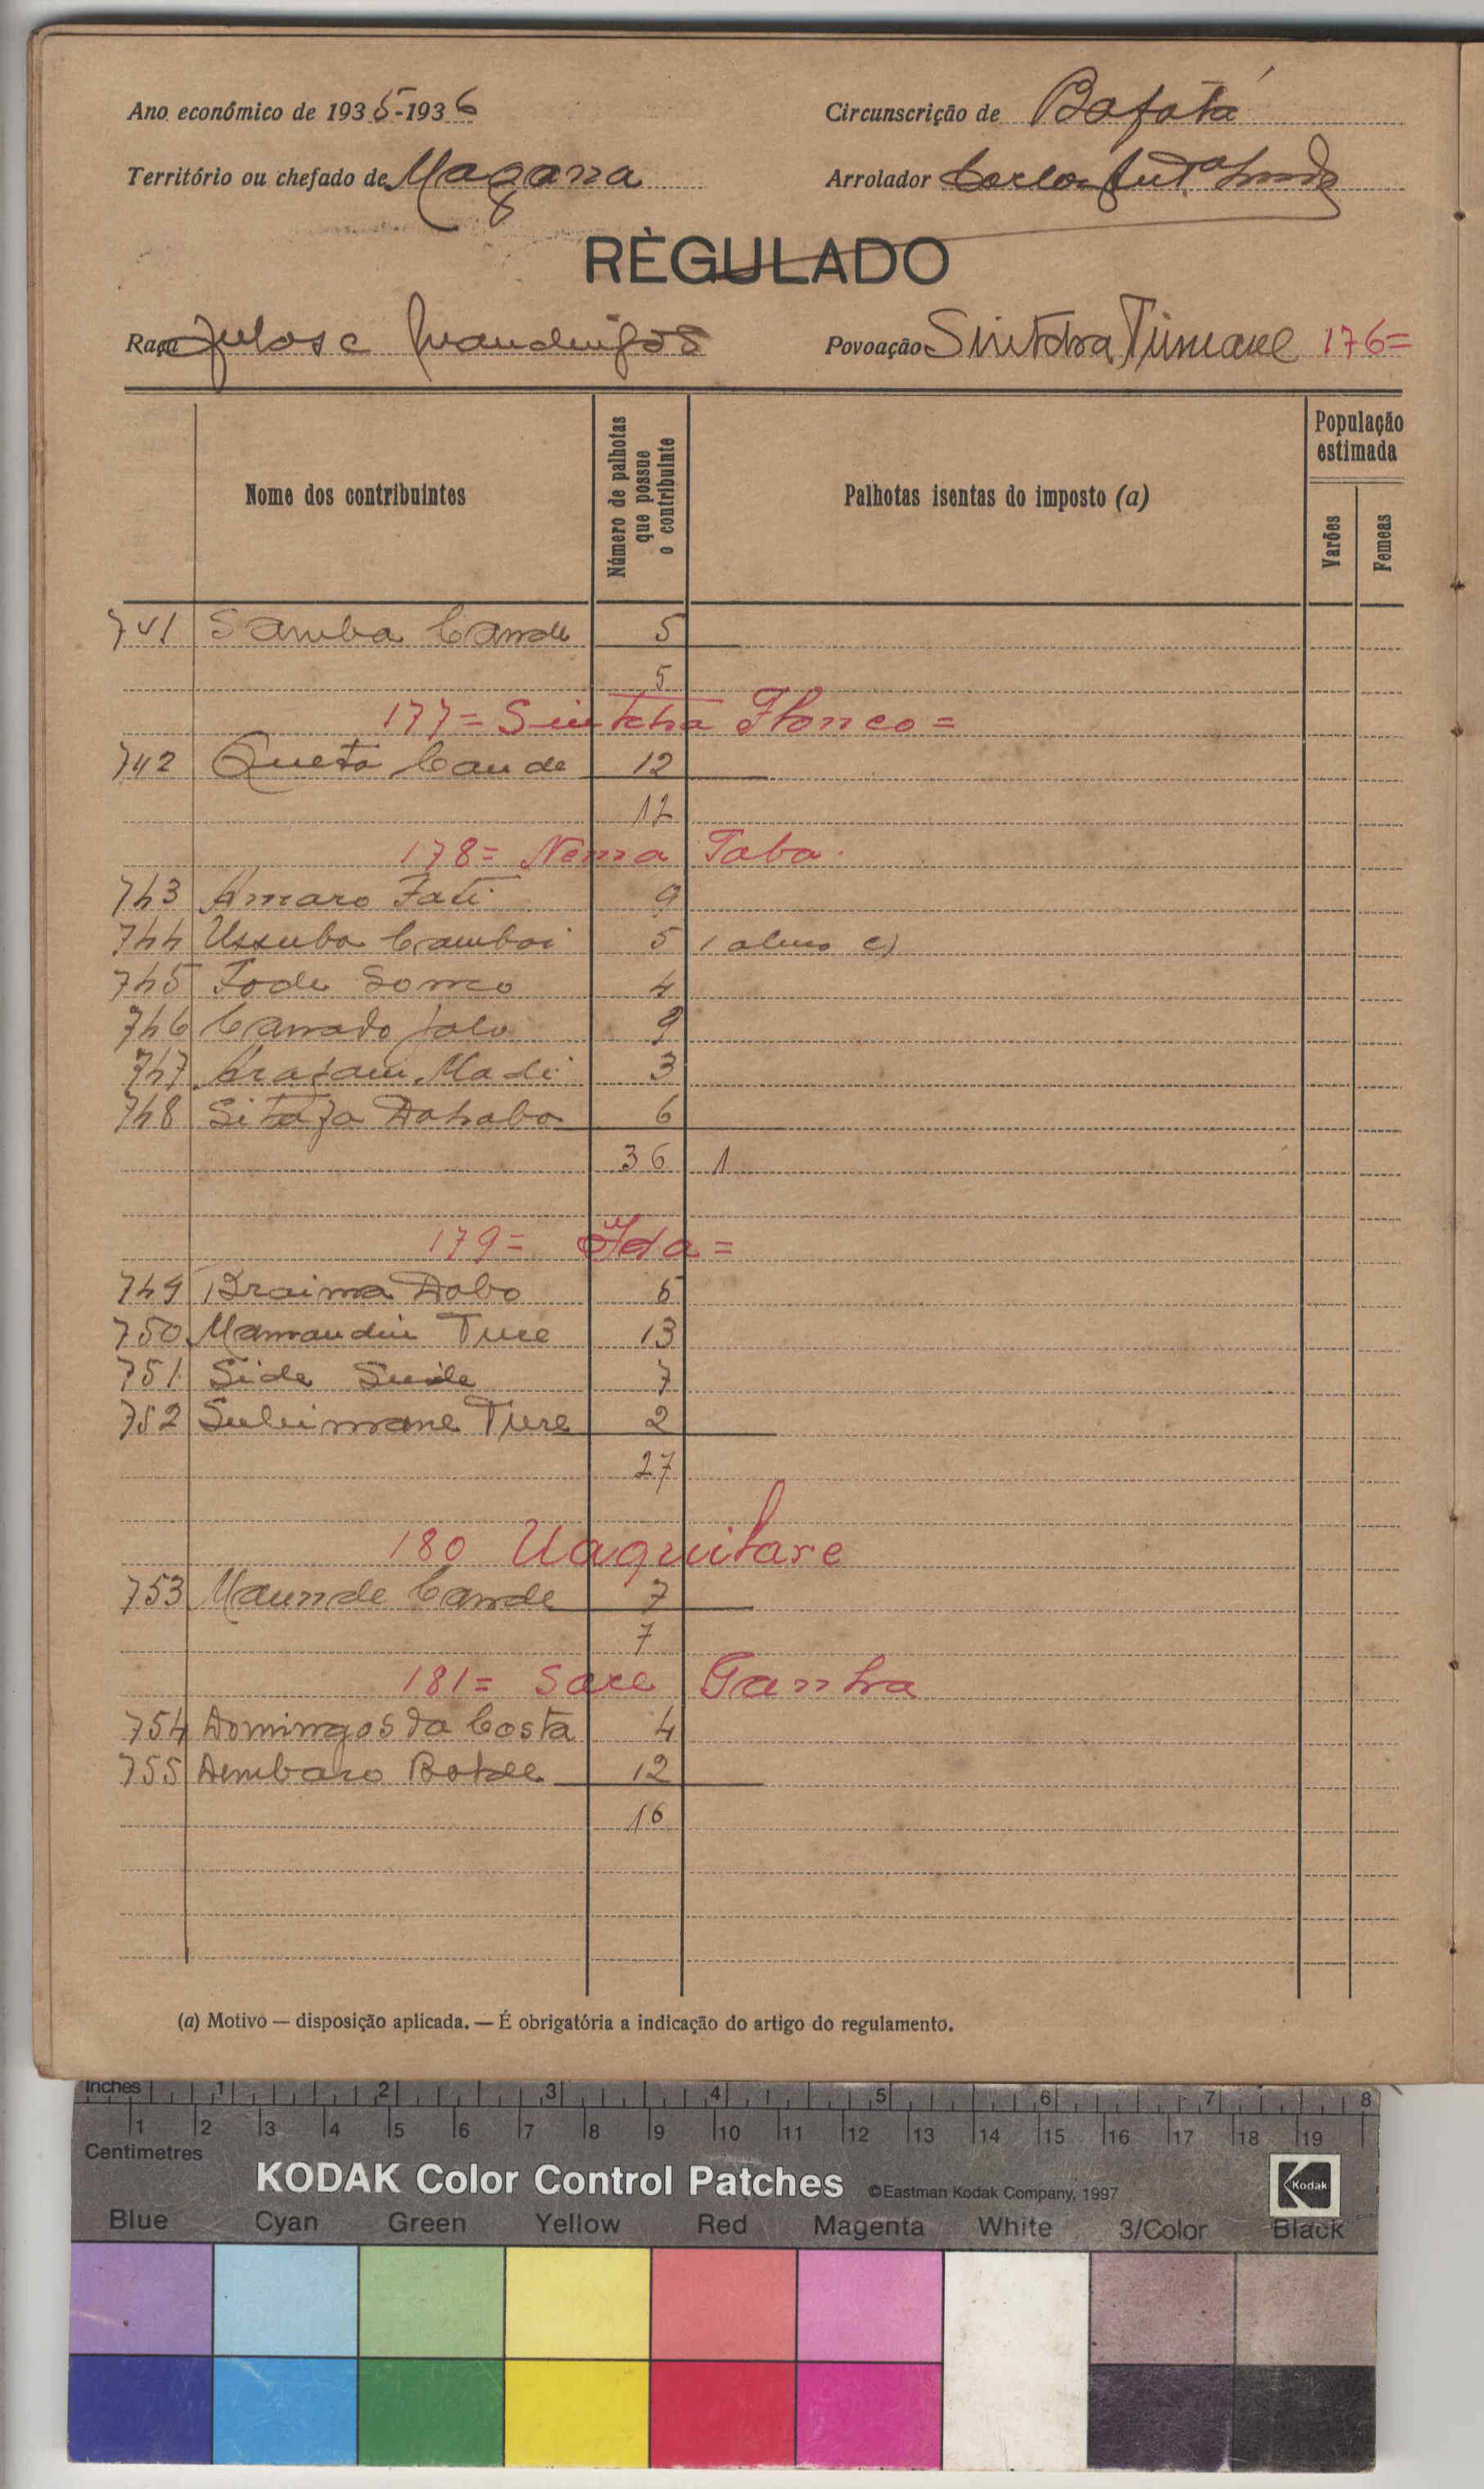 Ano económico de 1935-1936
Circunscrição de Bafatá
Território ou chefado de Magana
Arrolador Carlos
RÉGULADO
Raça Fulos e Mandingos
Povoação Sintcha Tumane 176=
Nome dos contribuintes
Número de palhotas que possue o contribuinte
Palhotas isentas do imposto (a)
População estimada
Varões
Femeas
741 Samba Cande 5
5
177= Sintcha Honco=
742 Queta Cande 12
12
178= Nema Taba
743 Amaro Fati 9
744 Ussuba Camboi 5 1 aluno c)
745 Fode Sonco 4
746 Canado Jalo 9
747 Madi 3
748 Sitafa Dahabo 6
36 1
179= Ida=
749 Braima Dabo 5
750 Mamaudu Ture 13
751 Side 7
752 Suleimane Ture 2
27
180 Uaquilare
753 Maunde Cande 7
7
181= Sare Ganha
754 Domingos da Costa 4
755 Dembaro 12
16
(a) Motivo — disposição aplicada. — É obrigatória a indicação do artigo do regulamento.
Inches 1 2 3 4 5 6 7 8
1 2 3 4 5 6 7 8 9 10 11 12 13 14 15 16 17 18 19
Centimetres
KODAK Color Control Patches ©Eastman Kodak Company, 1997
Kodak
Blue Cyan Green Yellow Red Magenta White 3/Color Black